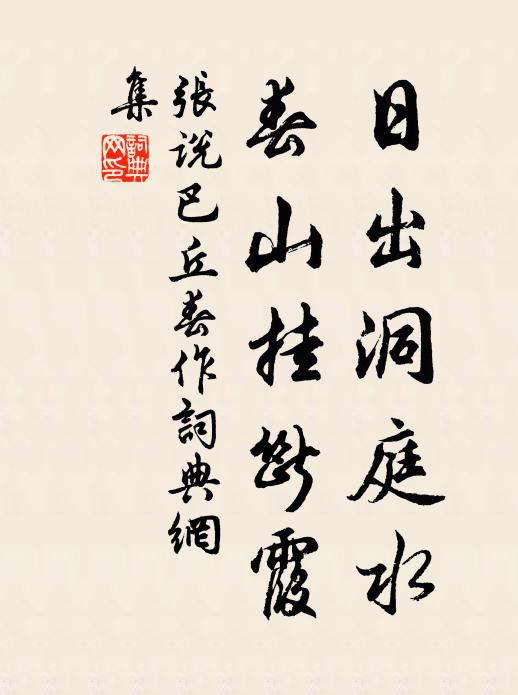 日出洞庭水
春山挂斷霞
張說巴丘春作詞典網
集
詞典
網印